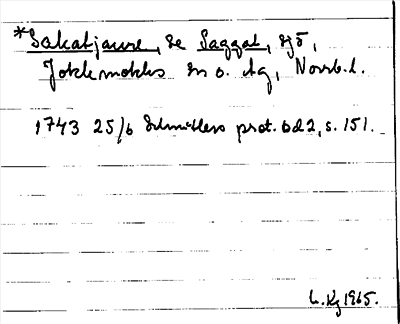 *Sakatjaure, se Saggat, sjö,
Jokkmokks sn o. tg, Norrb. l.
1743 25/6 Schnitlers prot. bd 2, s. 151.
L. Kg 1965.